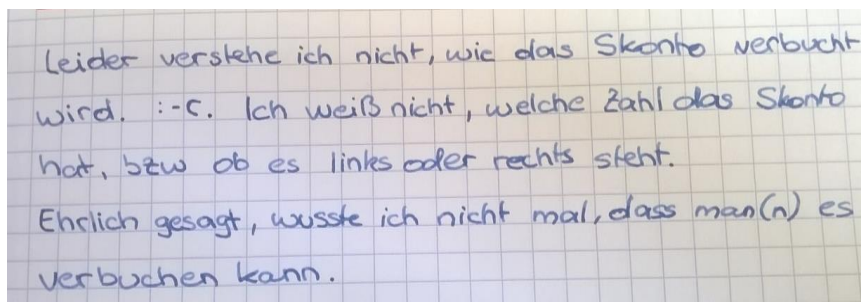 Leider verstehe ich nicht, wie das Skonto verbucht
wird. :-C. Ich weiß nicht, welche Zahl das Skonto
hat, bzw ob es links oder rechts steht.
Ehrlich gesagt, wusste ich nicht mal, dass man(n) es
verbuchen kann.